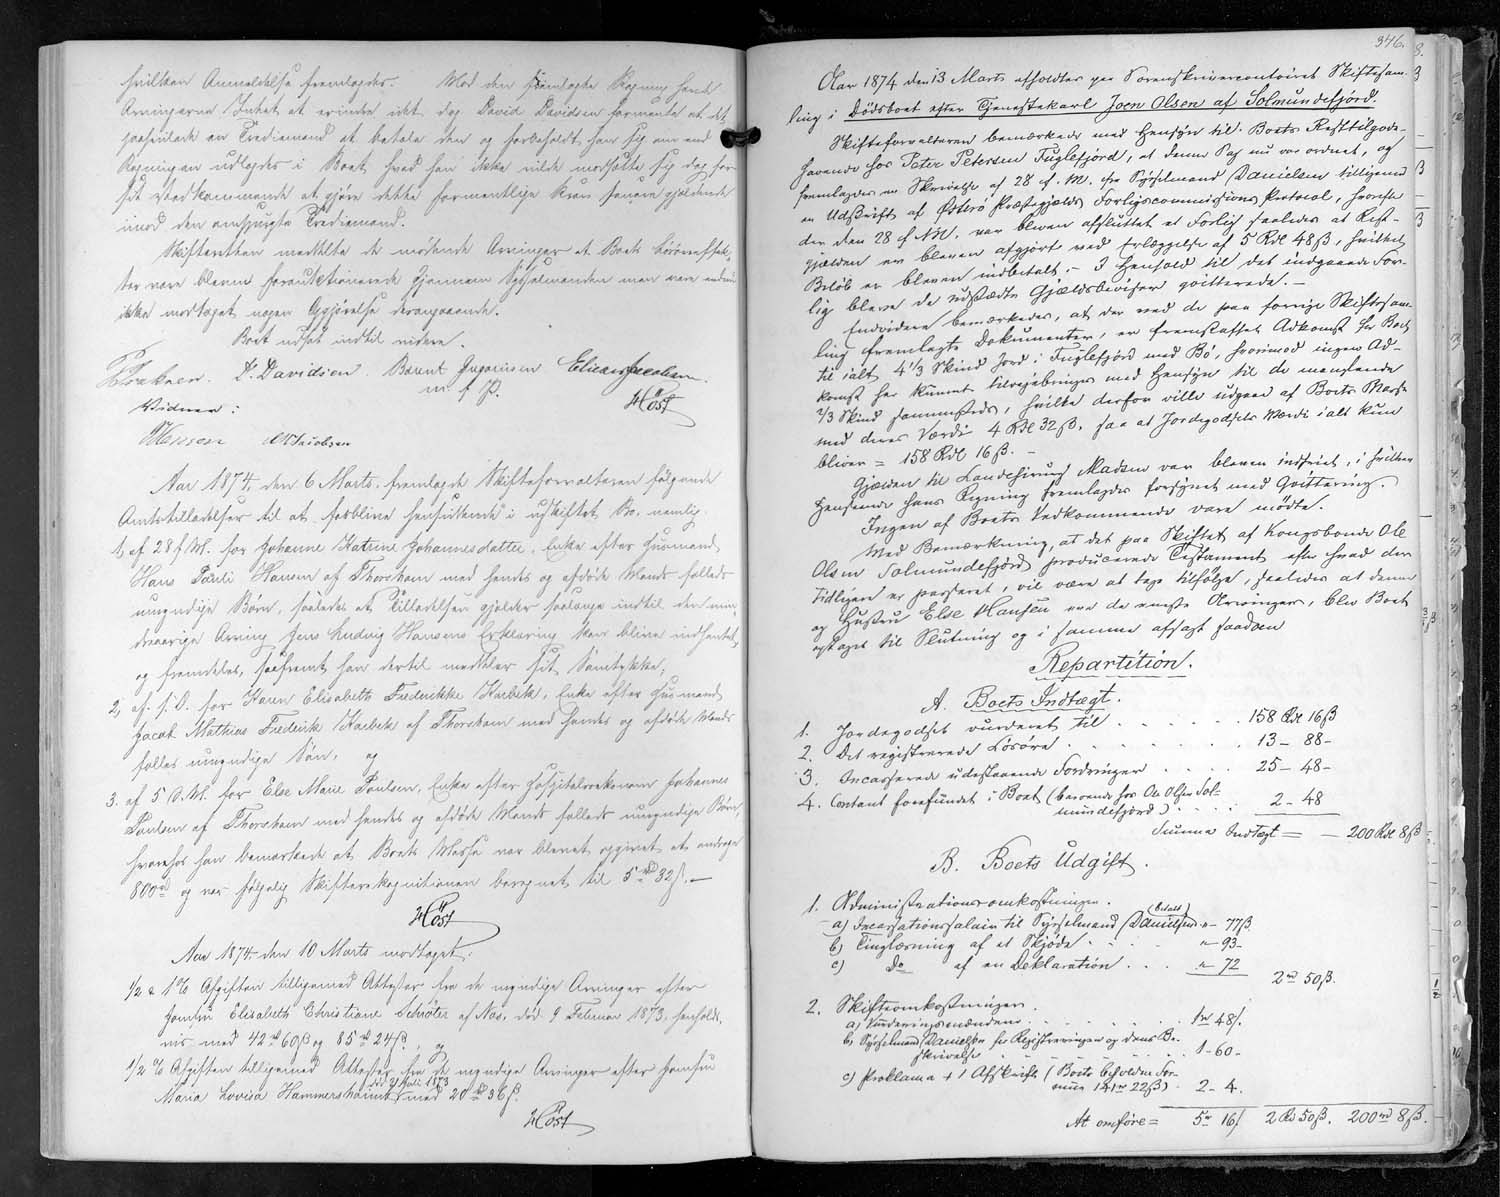 hvilken Anmeldelse fremlagdes. Mod den fremlagte Regning havde
Arvingerne Intet at erindre idet dog David Davidsen formente at det
paahvilede en Trediemand at betale den og forbeholdt han sig om end
Regningen udlagdes i Boet, hvad han ikke vilde modsætte sig dog for
sit Vedkommende at gjøre dette formentlige Krav senere gjældende
imod den ansvarlige Trediemand.
Skifteretten meddelte de mødende Arvinger at Boets Løsøreeffek-
ter vare blevne forauktionerede gjennem Sysselmanden men var endnu
ikke modtaget nogen Opgjørelse derangaaende.
Boet udsat indtil videre.
D. Davidsen. Barent Elieser Jacobsen.
m. f. P.
HHöst
Vidner:
Hansen Jacobsen
Aar 1874 den 6 Marts fremlagde Skifteforvalteren følgende
Amtstilladelser til at forblive hensiddende i uskiftet Bo. nemlig
1, af 28 f. M. for Johanne Katrine Johannesdatter, Enke efter Huusmand
Hans Pauli Hansen af Thorshavn med hendes og afdøde Mands fælleds
umyndige Børn, saaledes at Tilladelsen gjelder saalænge indtil den min-
dreaarige Arving Jens Ludvig Hansens Erklæring kan blive indhentet
og fremdeles, saafremt han dertil meddeler sit Samtykke;
2, af s. D. for Karen Elisabeth Frederikke Kurbek, Enke efter Huusmand
Jacob Mathias Frederik Kurbek af Thorshavn med hendes og afdøde Mands
fælles umyndige Søn, og
3. af 5 d. M. for Else Marie Poulsen, Enke efter Hospitalsøkonom Johannes
Poulsen af Thorshavn med hendes og afdøde Mands fælleds umyndige Børn,
hvorhos han bemærkede at Boets Masse var blevet opgivet at andrage
800 rd og var følgelig Skifterekognitionen beregnet til 5 rd 32 ß. —
HHöst
Aar 1874 den 10 Marts modtaget:
1/2 & 1 % Afgiften tilligemed Attester fra de myndige Arvinger efter
Jomfru Elisabeth Christiane Schröter af Næs, død 9 Februar 1873, henholds-
vis med 42 rd 60 ß og 85 rd 24 ß, og
1/2 % Afgiften tilligemed Attester fra de myndige Arvinger efter Jomfru
Maria Lovisa Hammershaimb død 21 Juli 1873 med 20 rd 36 ß.
HHöst
346.
Aar 1874 den 13 Marts afholdtes paa Sorenskrivercontoiret Skiftesam-
ling i Dødsboet efter Tjenestekarl Joen Olsen af Solmundefjörd.
Skifteforvalteren bemærkede med Hensyn til Boets Resttilgode-
havende hos Peter Petersen Fuglefjord, at denne Sag nu var ordnet, og
fremlagdes en Skrivelse af 28 f. M. fra Sysselmand Danielsen tilligemed
en Udskrift af Østerö Præstegjælds Forligscommissions Protocol, hvorefter
der den 28 f M. var bleven afsluttet et Forlig saaledes at Rest-
gjælden er bleven afgjort ved Erlæggelse af 5 Rdl 48 ß, hvilket
Belöb er bleven indbetalt. – I Henhold til det indgaaede For-
lig bleve de udstædte Gjældsbeviser qvitterede. –
Endvidere bemærkedes, at der ved de paa forrige Skiftesam-
ling fremlagte Dokumenter, er fremskaffet Adkomst for Boet
til ialt 4 1/3 Skind Jord i Fuglefjörd med Bö, hvorimod ingen Ad-
komst har kunnet tilvejebringes med Hensyn til de manglende
2/3 Skind sammesteds, hvilke derfor ville udgaae af Boets Masse
med deres Værdi 4 Rdl 32 ß, saa at Jordegodsets Værdi ialt kun
bliver = 158 Rdl 16 ß. –
Gjælden til Landchirurg Madsen var bleven indfriet, i hvilken
Henseende hans Regning fremlagdes forsynet med Qvittering.
Ingen af Boets Vedkommende vare mödte.
Med Bemærkning, at det paa Skiftet af Kongsbonde Ole
Olsen Solmundefjord producerede Testament efter hvad der
tidligere er passeret, vil være at tage tilfølge, saaledes at denne
og Hustru Else Hansen ere de eneste Arvinger, blev Boet
optaget til Slutning og i samme afsagt saadan
Repartition.
A. Boets Indtægt.
1. Jordegodset vurderet til . . . . . . 158 Rdl 16 ß
2. Det registrerede Lösöre . . . . . . 13 – 88 –
3. Incasserede udestaaende Fordringer . . . . 25 – 48 –
4. Contant forefundet i Boet (beroende hos Ole Olsen Sol-
mundefjord) . . . . 2 – 48
Summa Indtægt = – 200 Rdl 8 ß
B. Boets Udgift.
1. Administrationsomkostninger.
a) Incassationssalair til Sysselmand Danielsen (betalt) " – 77 ß
b) Tinglæsning af et Skjöde . . . . " – 93 –
c) do af en Deklaration . . . " – 72
2 rd 50 ß.
2. Skifteomkostninger
a) Vurderingsmændene . . . . . . 1 rd 48 ß.
b) Sysselmand Danielsen for Registreringen og dens Be-
skrivelse . . . . . . 1 – 60 –
c) Proklama + 1 Afskrift (Boets beholdne For-
mue 141 rd 22 ß) . 2 – 4.
At omföre = 5 rd 16 ß 2 Rd 50 ß. 200 rd 8 ß.